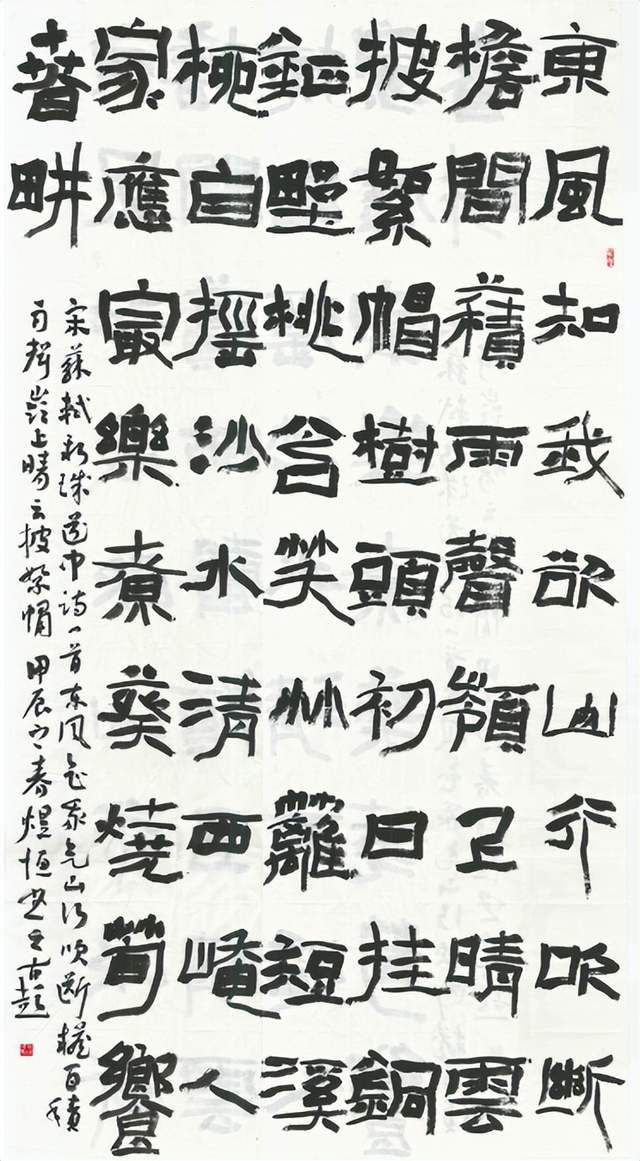 東風知我欲山行吹斷
檐間積雨聲嶺上晴雲
披絮帽樹頭初日挂銅
鉦野桃含笑竹籬短溪
柳自搖沙水清西崦人
家應最樂煮葵燒筍饗
萅畊
宋蘇軾新城道中诗一首东风知我欲山行吹断檐间积
雨聲嶺上晴云披絮帽甲辰之春煜恒书